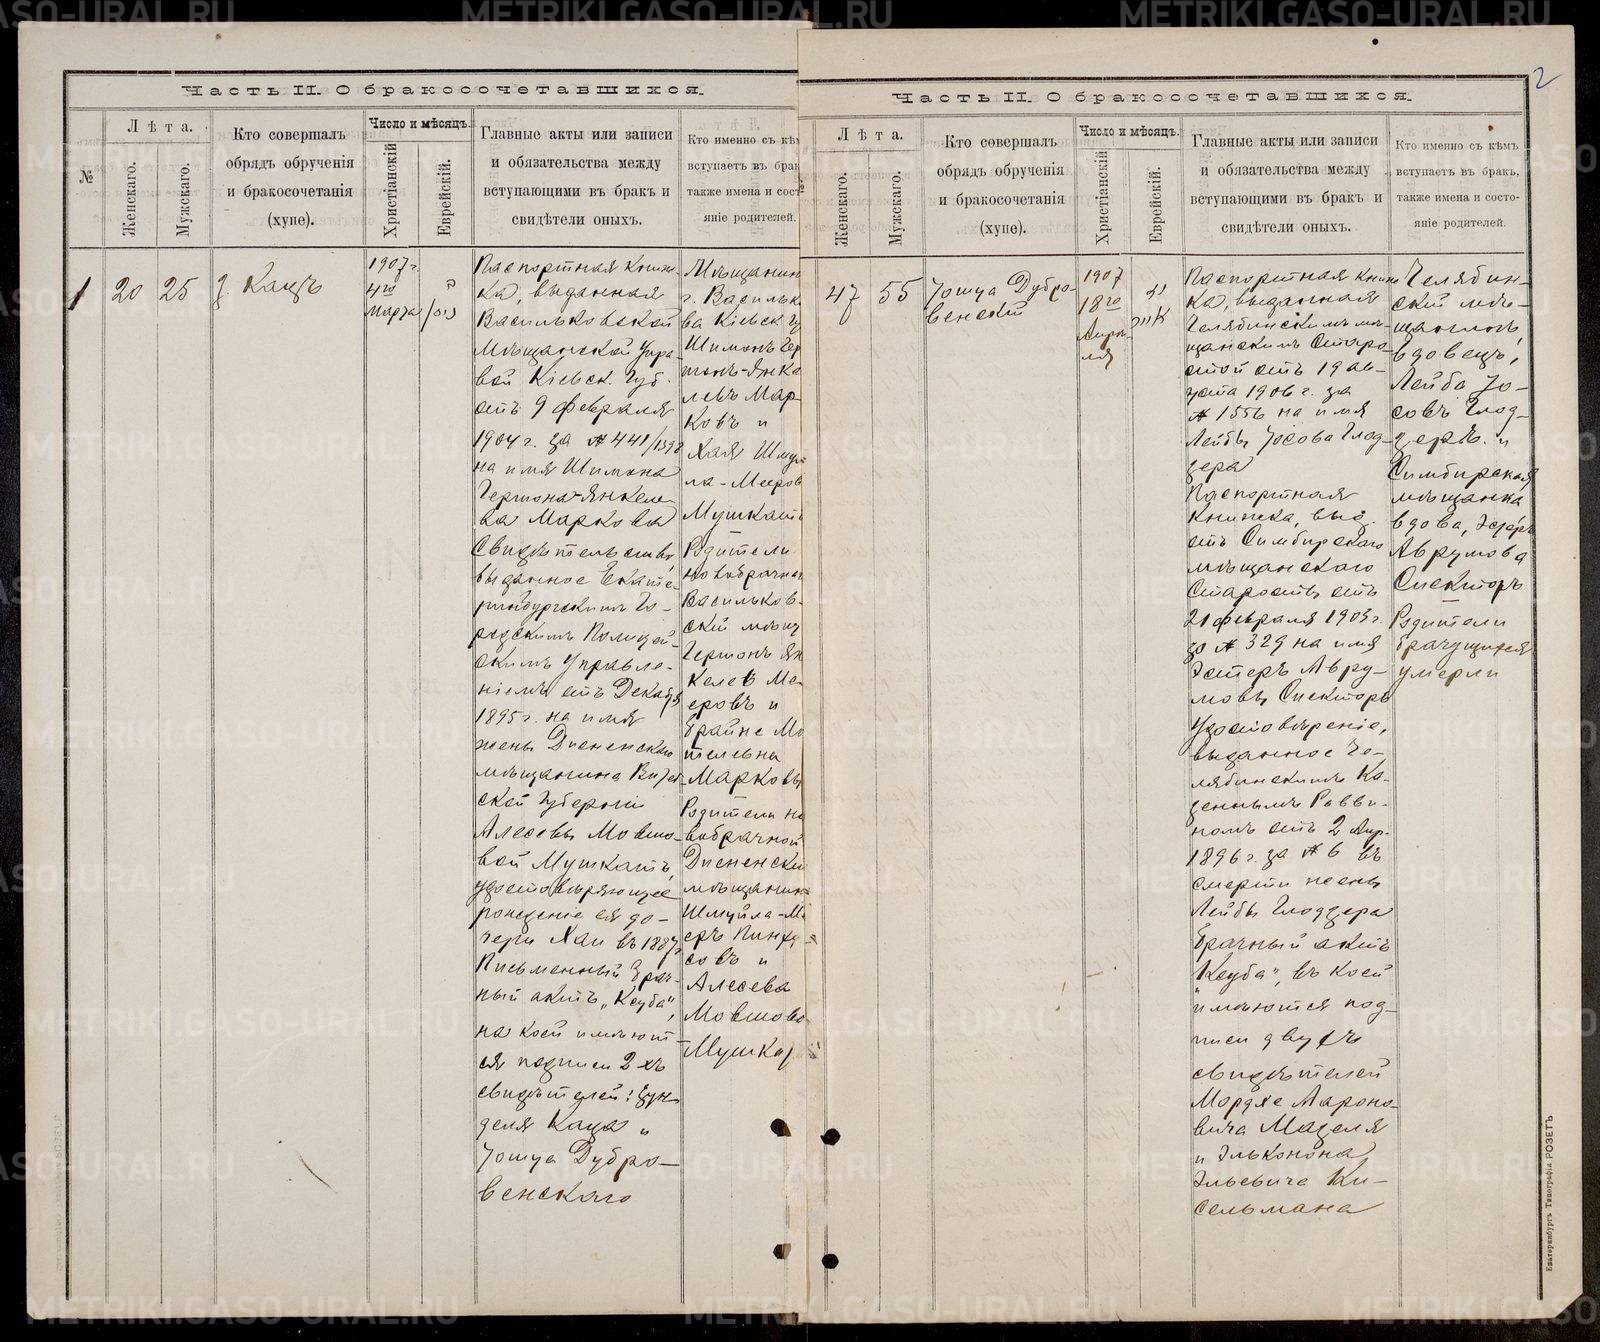 Часть II. О бракосочетавшихся.
№
Лѣта.
Женскаго.
Мужскаго.
Кто совершалъ
обрядъ обрученія
и бракосочетанія
(хупе).
Число и мѣсяцъ.
Христіанскій
Еврейскій.
Главные акты или записи
и обязательства между
вступающими въ бракъ и
свидѣтели оныхъ.
Кто именно съ кѣм
вступаетъ въ брак
также имена и сост
яніе родителей.
1
20
25
Кацъ
1907 г.
4го
Марта
Паспортная книж-
ка, выданная
Васильковской
Мѣщанской Упра-
вой Кіевск. Губ.
отъ 9 февраля
1904 г. за № 441/1398
на имя Шимона
Гершона-Янкеле
ва Маркова
Свидѣтельство,
выданное Екате-
ринбургскимъ Го-
родскимъ Полицей-
скимъ Управле-
ніемъ отъ Декабря
1895 г. на имя
жены Дисненскаго
мѣщанина Витеб
ской Губерніи
Алесевы Мовшо-
вой Мушкатъ,
удостовѣряющее
рожденіе ея до-
чери Хаи въ 1887 г.
Письменный Брач-
ный актъ „Ксуба",
на коей имѣют-
ся подписи 2-хъ
свидѣтелей: Зун-
деля Каца и
Іошуа Дубро-
венскаго
Мѣщанин
г. Василько
ва Кіевск. Гу
Шимонъ Гер
шонъ-Янке
левъ Мар-
ковъ и
Хая Шмуй
ла-Мееров
Мушкатъ
Родители
новобрачна
Васильков-
скій мѣщ
Гершонъ Ян
келев Ме-
еровъ и
Брайне Мо
телевна
Марковы
Родители но
вобрачной
Дисненскій
мѣщанин
Шмуйла-М
еръ Пинха
совъ и
Алесева
Мовшово
Мушка
2
Часть II. О бракосочетавшихся.
Лѣта.
Женскаго.
Мужскаго.
Кто совершалъ
обрядъ обрученія
и бракосочетанія
(хупе).
Число и мѣсяцъ.
Христіанскій
Еврейскій.
Главные акты или записи
и обязательства между
вступающими въ бракъ и
свидѣтели оныхъ.
Кто именно съ кѣмъ
вступаетъ въ бракъ,
также имена и состо-
яніе родителей.
47
55
Іошуа Дубро-
венскій
1907
18го
Апрѣ-
ля
Паспортная книж
ка, выданная
Челябинскимъ мѣ-
щанскимъ Старо-
стой отъ 19 ав-
густа 1906 г. за
№ 1556 на имя
Лейбы Іосова Глод-
зера
Паспортная
книжка, выд.
отъ Симбирскаго
мѣщанскаго
Старосты отъ
21 февраля 1903 г.
за № 329 на имя
Эстеръ Авру-
мовы Спекторъ
Удостовѣреніе,
выданное Че-
лябинскимъ Ка-
зеннымъ Равви-
номъ отъ 2 Апр.
1896 г. за № 6 въ
смерти жены
Лейбы Глодзера
Брачный актъ
„Ксуба", въ коей
имѣются под-
писи двухъ
свидѣтелей
Мордхе Мароно-
вича Мацеля
и Эльконона
Эльевича Ки-
сельмана
Челябин-
скій мѣ-
щанинъ
вдовецъ,
Лейба Іо-
совъ Глод-
зеръ и
Симбирская
мѣщанка
вдова, Эсѳирь
Аврумова
Спекторъ
Родители
брачущихся
умерли
Екатеринбургъ Типографія РОЗЕТЪ
METRIKI.GASO-URAL.RU